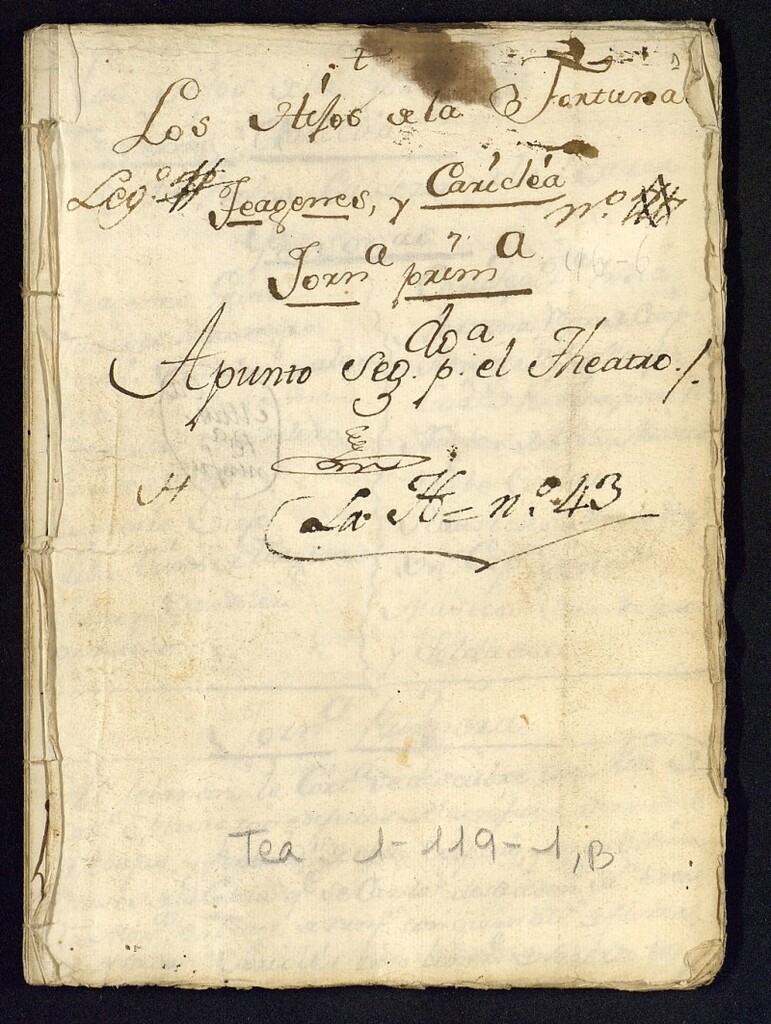 t
Los Hijos de la Fortuna
Leg.º Teagenes, y Cariclea n.º
Jorn.ª prim.ª
Apunto Seg.do p.a el Theatro./.
H
La H = n.º 43
Tea 1-119-1, B